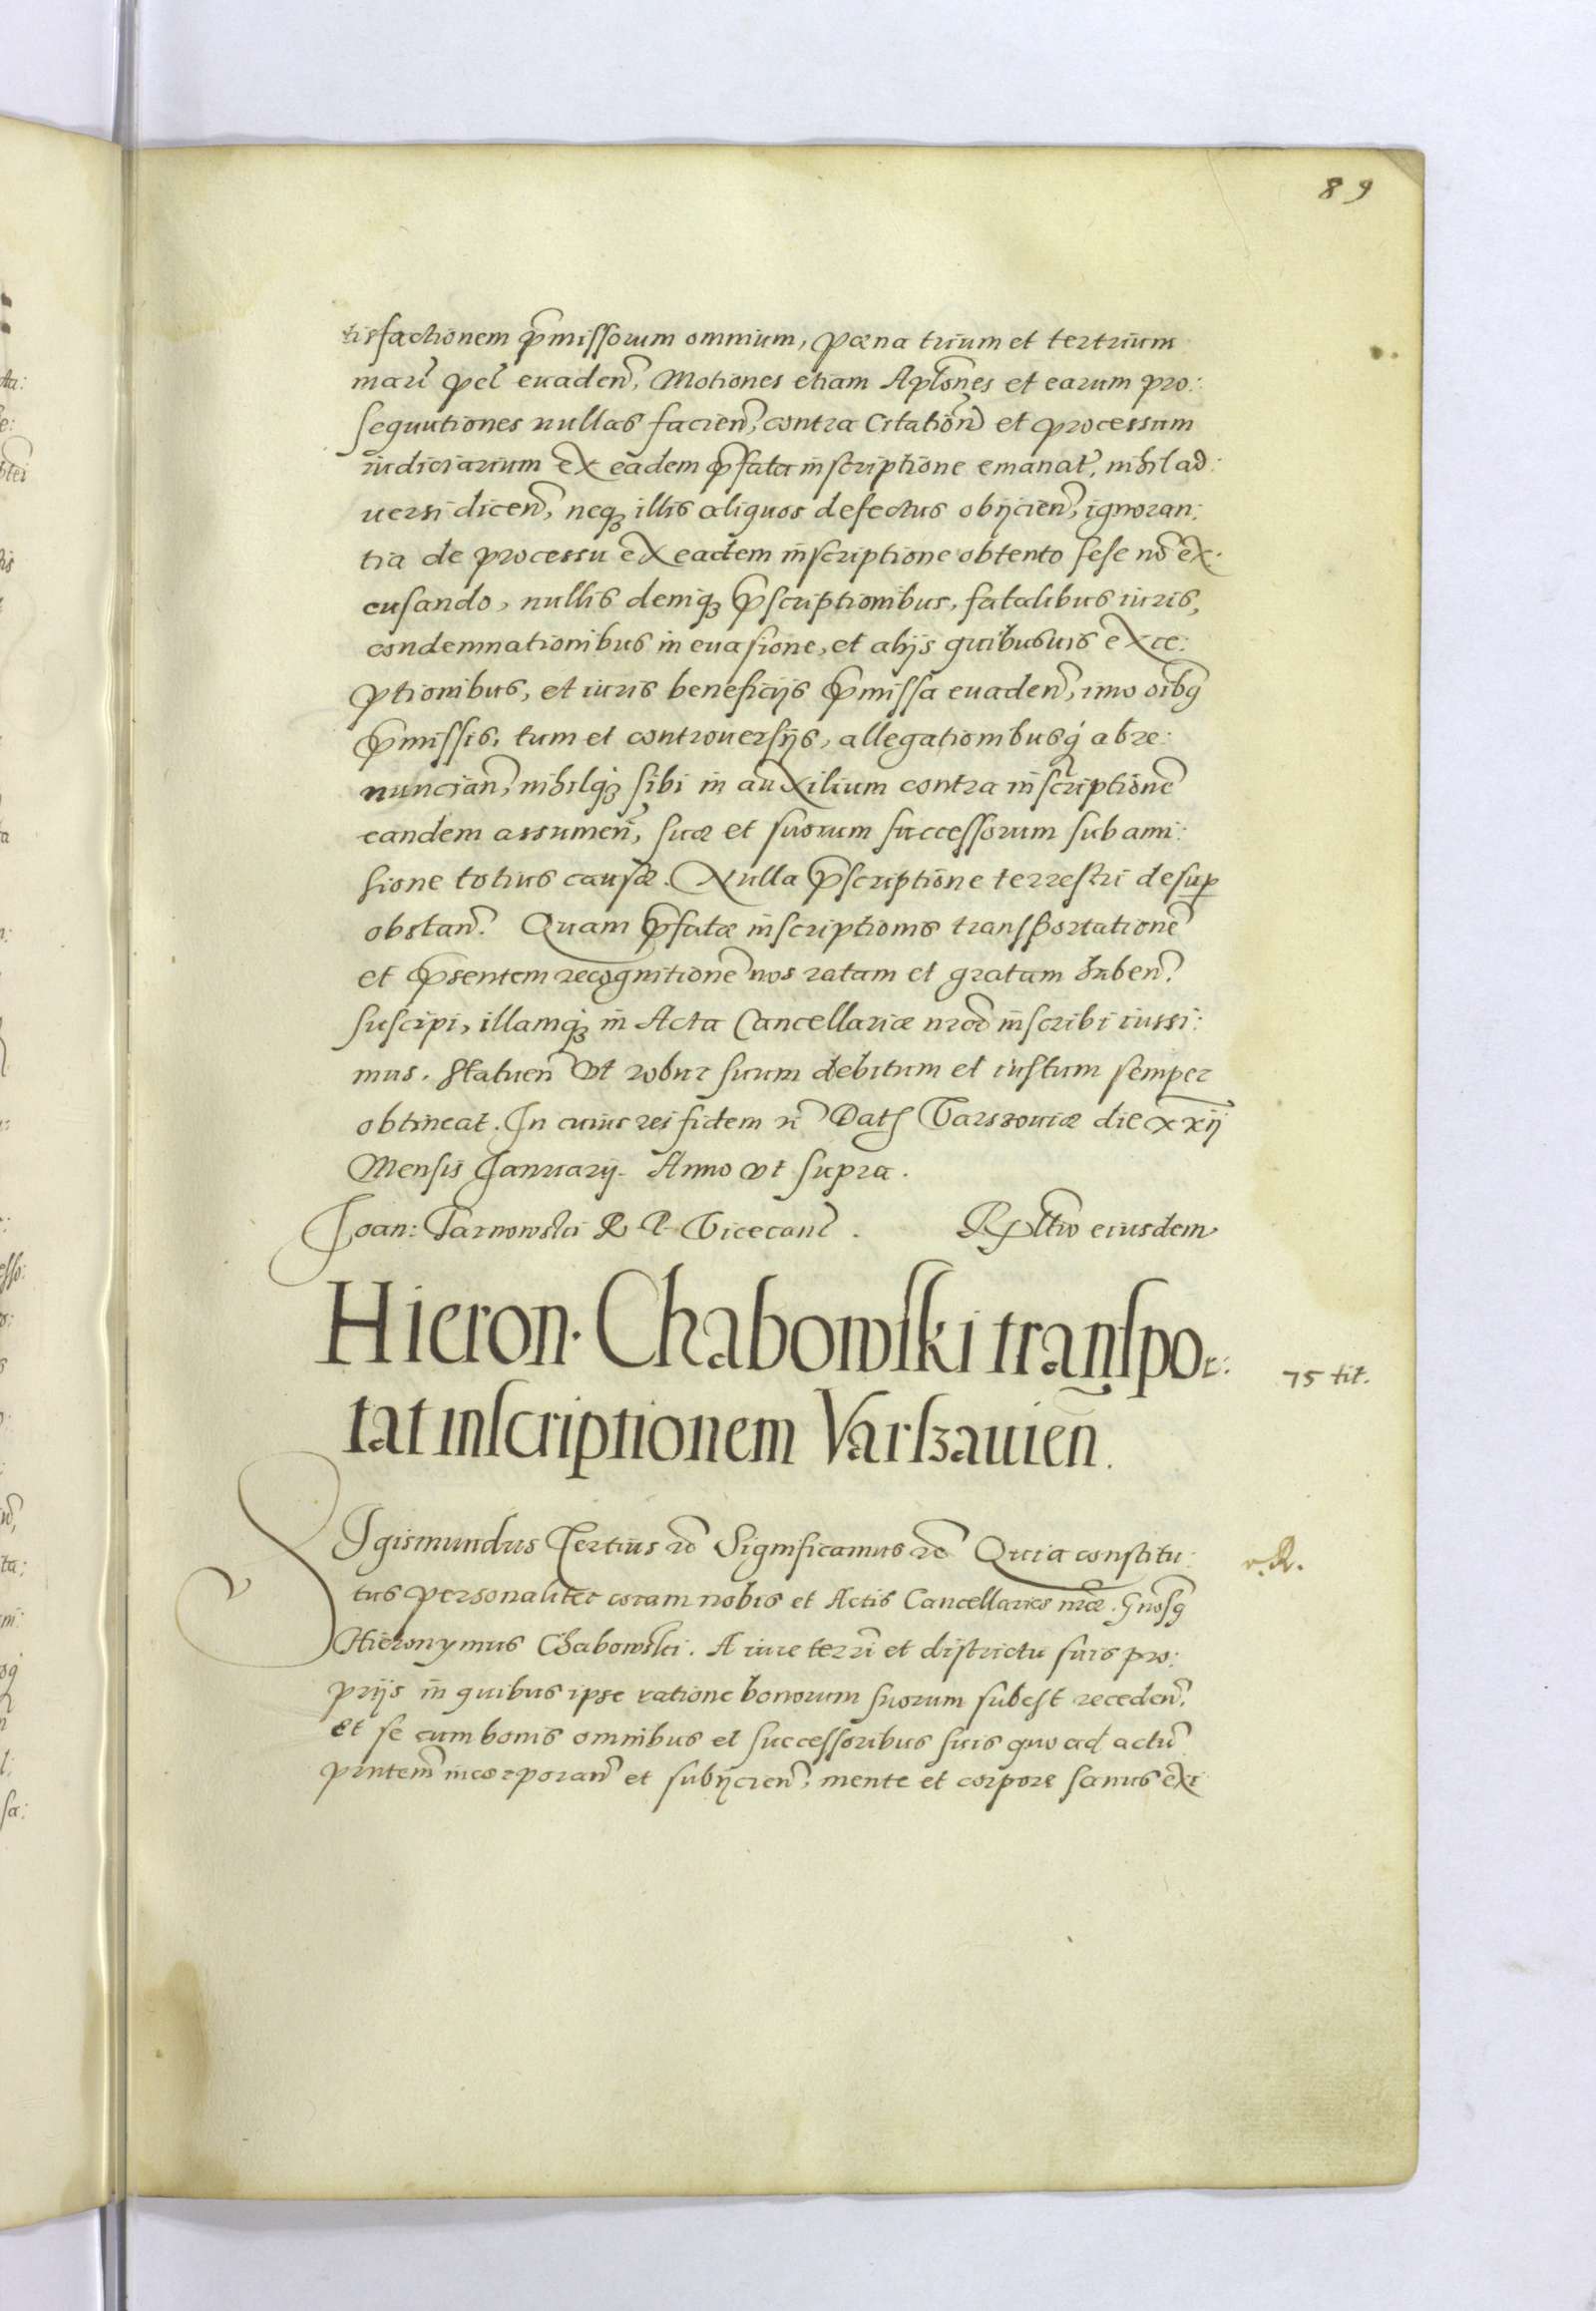 89
tisfactionem p̃missorum omnium, pœna trium et tertrium
mar̃ pel̃ euaden̄, Motiones etiam Apl̃ones et earum pro:
sequutiones nullas facien̄, contra Citation̄ et processum
iudiciarium ex eadem p̃fata inscriptione emanat̃, nihil ad:
uersi dicen̄, neq₃ illis aliquos defectus obijcien̄, ignoran:
tia de processu ex eadem inscriptione obtento sese nõ ex:
cusando, nullis deniq₃ p̃scriptionibus, fatalibus iuris,
condemnationibus in euasione, et alijs quibusuis exce:
ptionibus, et iuris beneficijs p̃missa euaden̄, imo oĩbq
p̃missis, tum et controuersijs, allegationibusq́ abre:
nuncian̄, nihilq́₃ sibi in auxilium contra inscriptionẽ
eandem assumen̄, suæ et suorum successorum sub ami:
sione totius causæ. Nulla p̃scriptione terrestri desup̱
obstan̄. Quam p̃fatæ inscriptionis transportationẽ
et p̃sentem recognitionẽ nos ratam et gratam haben̄.
suscipi, illamq́₃ in Acta Cancellariæ nræ̃ inscribi iussi:
mus. Statuen̄ Vt robur suum debitum et iustum semper
obtineat. In cuius rei fidem rẽ Datȝ Varszouiæ die xxij
Mensis Januarij. Anno vt supra.
Joan: Tarnowski R. P. Vicecanl̃. R̃ltio eiusdem
Hieron. Chabowski transpor:
75 tit.
tat inscriptionem Varszauien̄.
SIgismundus Tertius rẽ Significamus rẽ Quia constitu:
r. R.
tus personaliter coram nobis et Actis Cancellariæ nræ̃. Gñosq
Hieronymus Chabowski. A iure terrĩ et districtu suis pro:
prijs in quibus ipse ratione bonorum suorum subest receden̄.
et se cum bonis omnibus et successoribus suis quo ad actũ
pñtem̃ incorporan̄ et subijcien̄, mente et corpore sanus exi